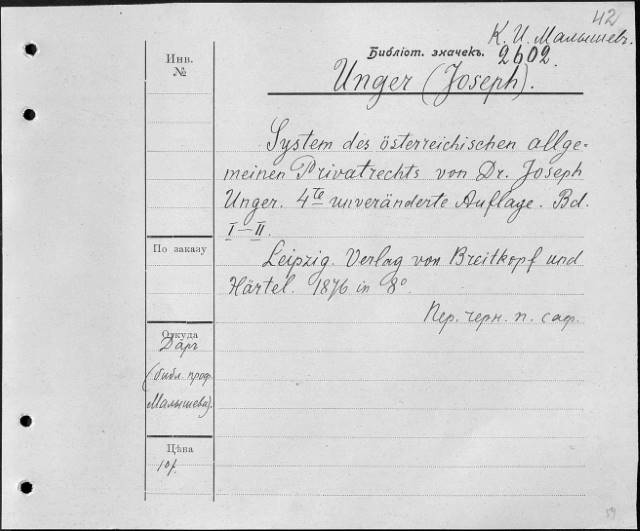 42
К. И. Малышевъ.
Библіот. значекъ. 2602.
Unger (Joseph).
Инв.
№
System des österreichischen allge-
meinen Privatrechts von Dr. Joseph
Unger. 4te unveränderte Auflage. Bd.
I–II.
По заказу
Leipzig. Verlag von Breitkopf und
Härtel. 1876 in 8°.
Пер. черн. п. саф.
Откуда
Даръ
(библ. проф.
Малышева).
Цѣна
10р.
59